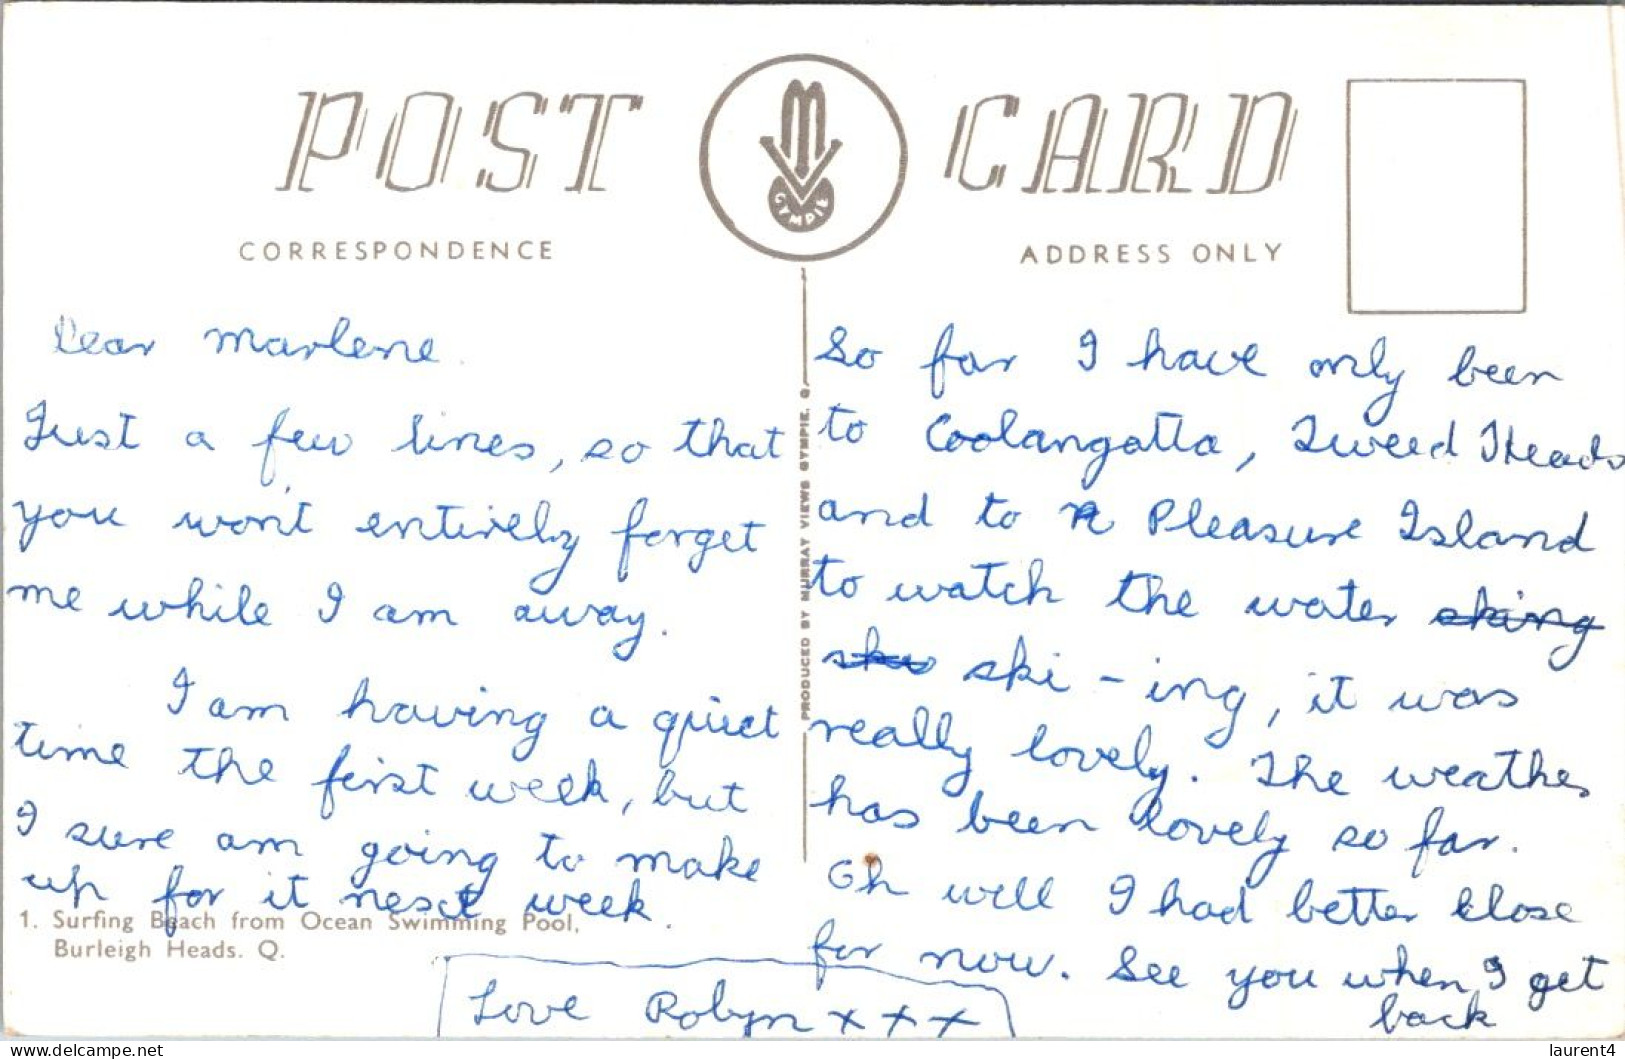 POST CARD
GYMPIE
CORRESPONDENCE
ADDRESS ONLY
Dear Marlene.
Just a few lines, so that
you won't entirely forget
me while I am away.
I am having a quiet
time the first week, but
I sure am going to make
up for it next week.
1. Surfing Beach from Ocean Swimming Pool,
Burleigh Heads. Q.
PRODUCED BY MURRAY VIEWS GYMPIE. Q.
So far I have only been
to Coolangatta, Tweed Heads
and to Pleasure Island
to watch the water sking
ski-ing, it was
really lovely. The weather
has been lovely so far.
Oh well I had better close
for now. See you when I get
back
Love Robyn xxx
laurent4
www.delcampe.net